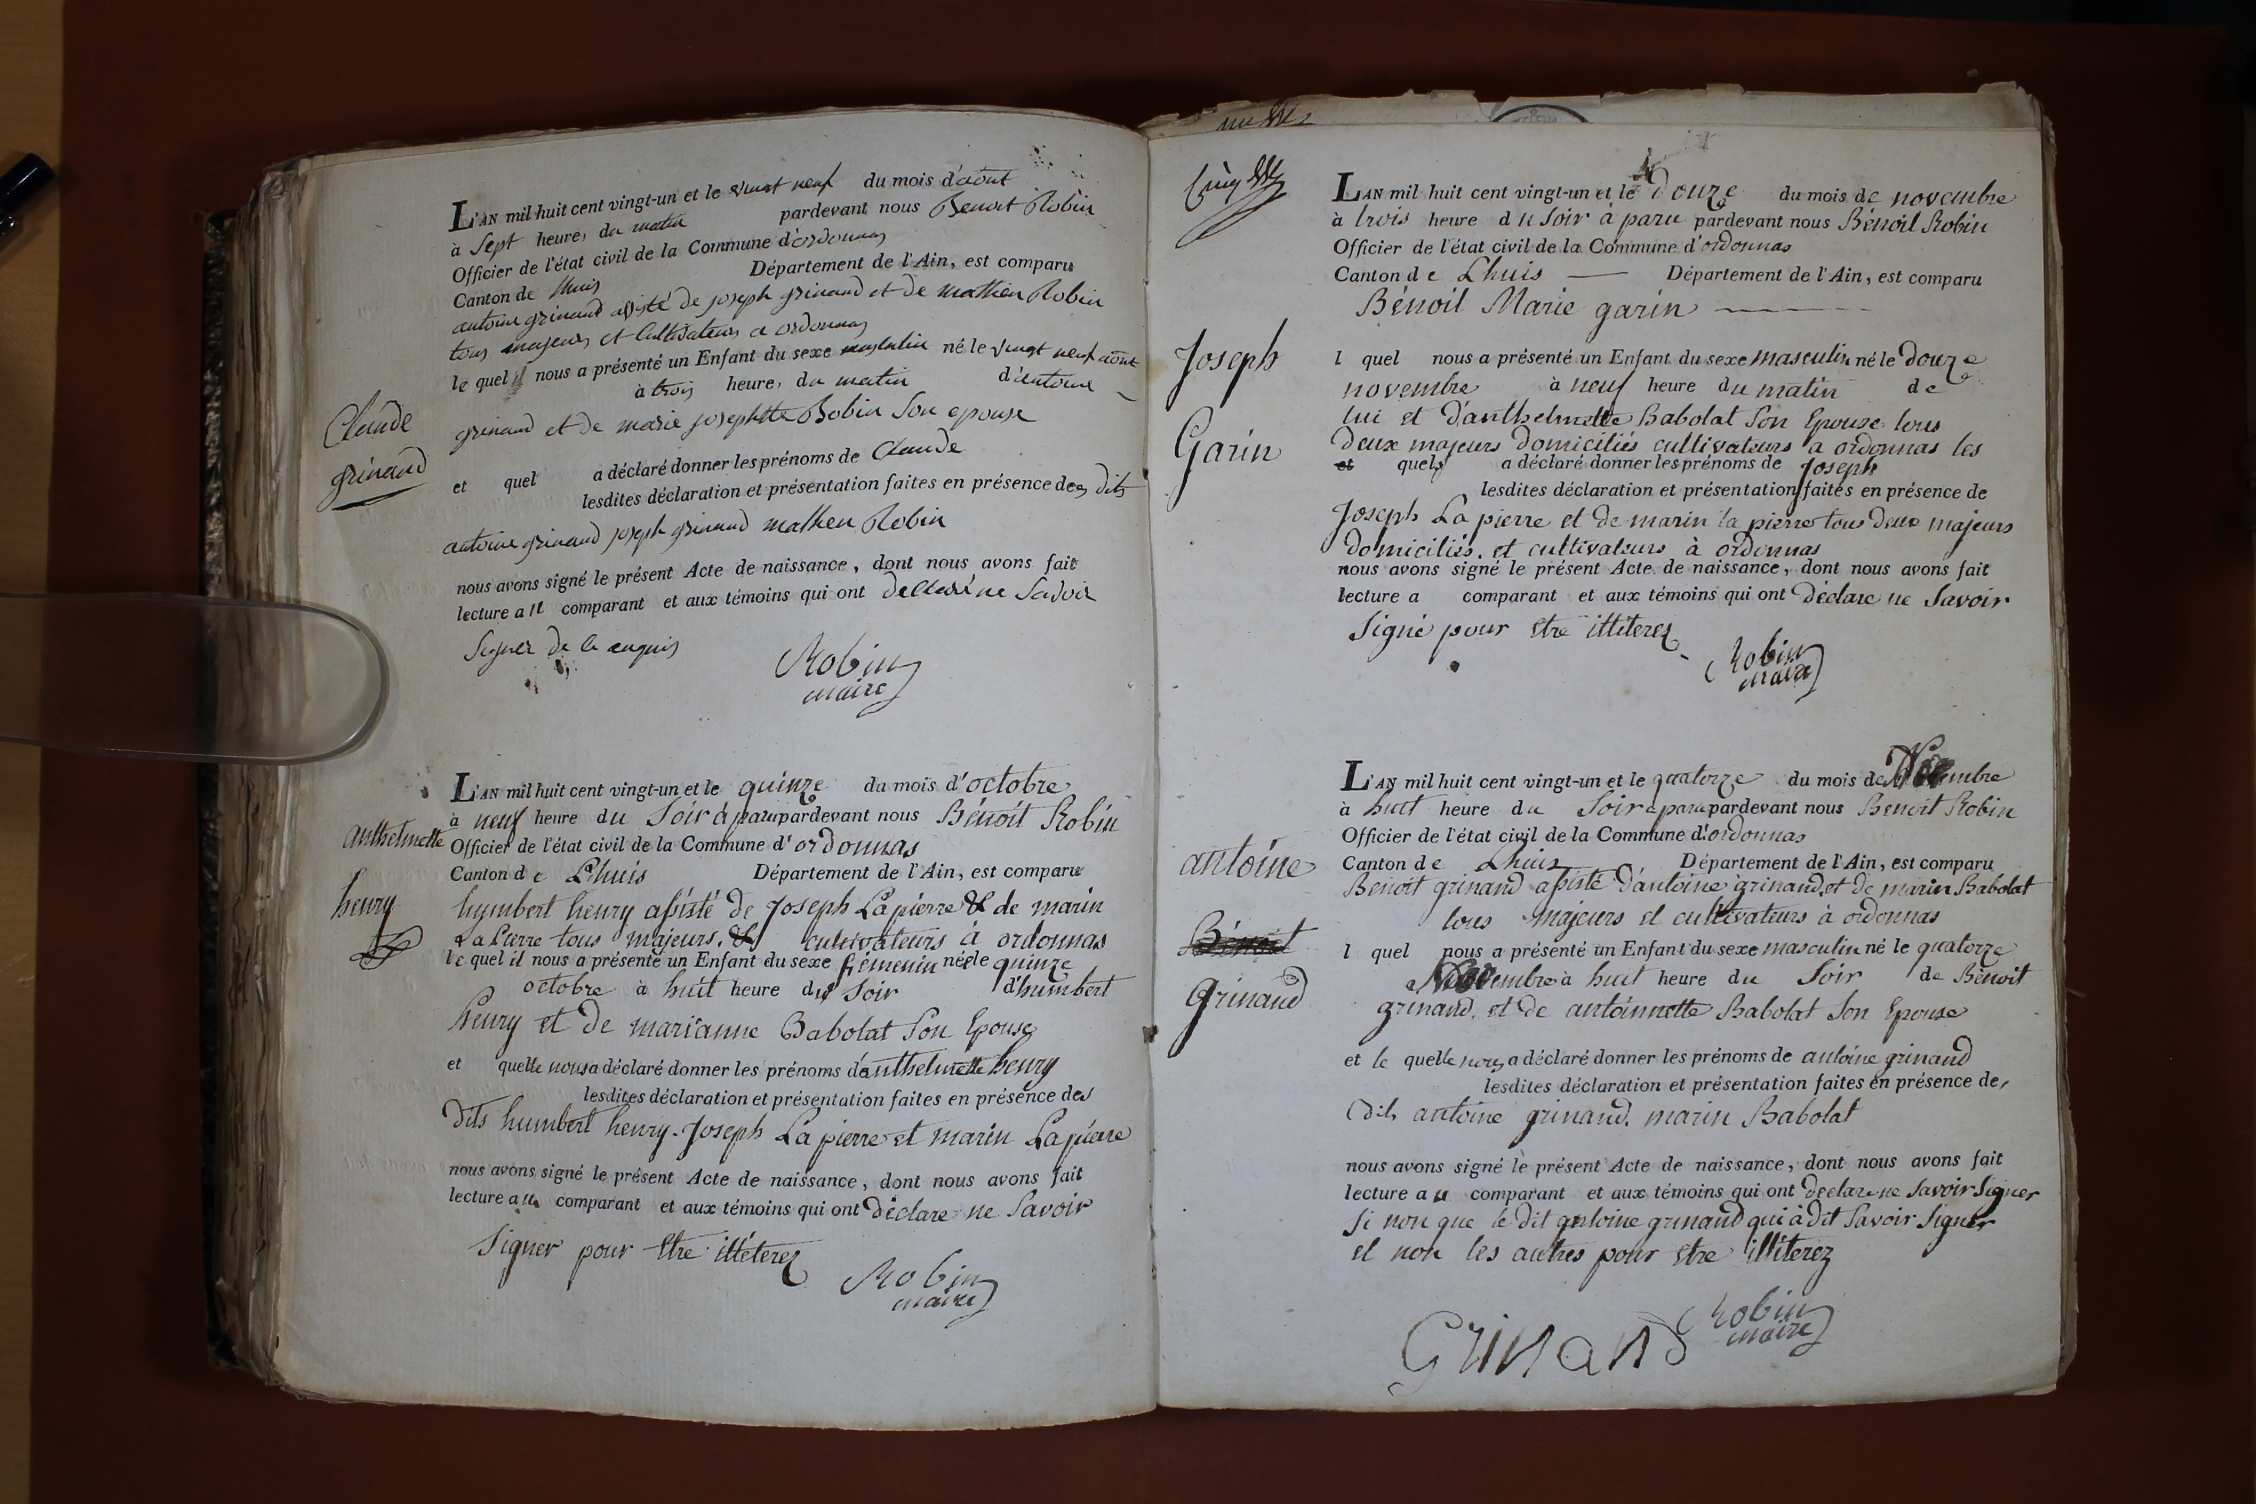 L'AN mil huit cent vingt-un et le vingt neuf du mois d'août
à Sept heure, du matin pardevant nous Benoit Robin
Officier de l'état civil de la Commune d'ordonnas
Canton de lhuis Département de l'Ain, est comparu
antoine grinand assisté de joseph grinand et de mathieu Robin
tous majeurs et Cultivateurs a ordonnas
le quel il nous a présenté un Enfant du sexe masculin né le vingt neuf août
à trois heure, du matin d'antoine
Claude
grinand
grinand et de marie josephtte Robin Son epouse
et quel a déclaré donner les prénoms de Claude
lesdites déclaration et présentation faites en présence des dits
antoine grinand joseph grinand mathieu Robin
nous avons signé le présent Acte de naissance, dont nous avons fait
lecture a u comparant et aux témoins qui ont declaré ne Savoir
Signer de ce enquis
Robin
maire
L'AN mil huit cent vingt-un et le quinze du mois d'octobre
à neuf heure du Soir à paru pardevant nous Bénoit Robin
Officier de l'état civil de la Commune d'ordonnas
Canton de Lhuis Département de l'Ain, est comparu
anthelmette
henry
humbert henry assisté de Joseph Lapierre & de marin
La Pierre tous majeurs. & cultivateurs à ordonnas
le quel il nous a présenté un Enfant du sexe fémenin née le quinze
octobre à huit heure du Soir d'humbert
henry et de marianne Babolat Son Epouse
et quelle nous a déclaré donner les prénoms d'anthelmette henry
lesdites déclaration et présentation faites en présence des
Dits humbert henry. Joseph La pierre et marin La pierre
nous avons signé le présent Acte de naissance, dont nous avons fait
lecture a u comparant et aux témoins qui ont déclare ne Savoir
Signer pour Etre illéterez
Robin
maire
Cinq
L'AN mil huit cent vingt-un et le douze du mois de novembre
à trois heure du Soir à paru pardevant nous Bénoit Robin
Officier de l'état civil de la Commune d'ordonnas
Canton de Lhuis Département de l'Ain, est comparu
Bénoit Marie garin
Joseph
Garin
l quel nous a présenté un Enfant du sexe masculin né le douze
novembre à neuf heure du matin de
lui et d'anthelmette Babolat Son Epouse tous
deux majeurs domiciliés cultivateurs a ordonnas les
et quels a déclaré donner les prénoms de Joseph
lesdites déclaration et présentation faites en présence de
Joseph La pierre et de marin la pierre tous deux majeurs
domiciliés. et cultivateurs à ordonnas
nous avons signé le présent Acte de naissance, dont nous avons fait
lecture a comparant et aux témoins qui ont déclare ne Savoir
Signé pour Etre illiterez
Robin
maire
L'AN mil huit cent vingt-un et le quatorze du mois de Novembre
à huit heure du Soir a paru pardevant nous Benoit Robin
Officier de l'état civil de la Commune d'ordonnas
Canton de Lhuis Département de l'Ain, est comparu
antoine
Bénoit
Grinand
Benoit grinand assisté d'antoine grinand et de marin Babolat
tous majeurs et cultivateurs à ordonnas
l quel nous a présenté un Enfant du sexe masculin né le quatorze
Novembre à huit heure du Soir de Bénoit
grinand. et de antoinnette Babolat Son Epouse
et le quelle nous a déclaré donner les prénoms de antoine grinand
lesdites déclaration et présentation faites en présence des
Dits antoine grinand. marin Babolat
nous avons signé le présent Acte de naissance, dont nous avons fait
lecture a u comparant et aux témoins qui ont déclare ne Savoir Signer
Si non que le dit antoine grinand qui à dit Savoir Signer
et non les autres pour etre illiterez
Robin
maire
Grinand